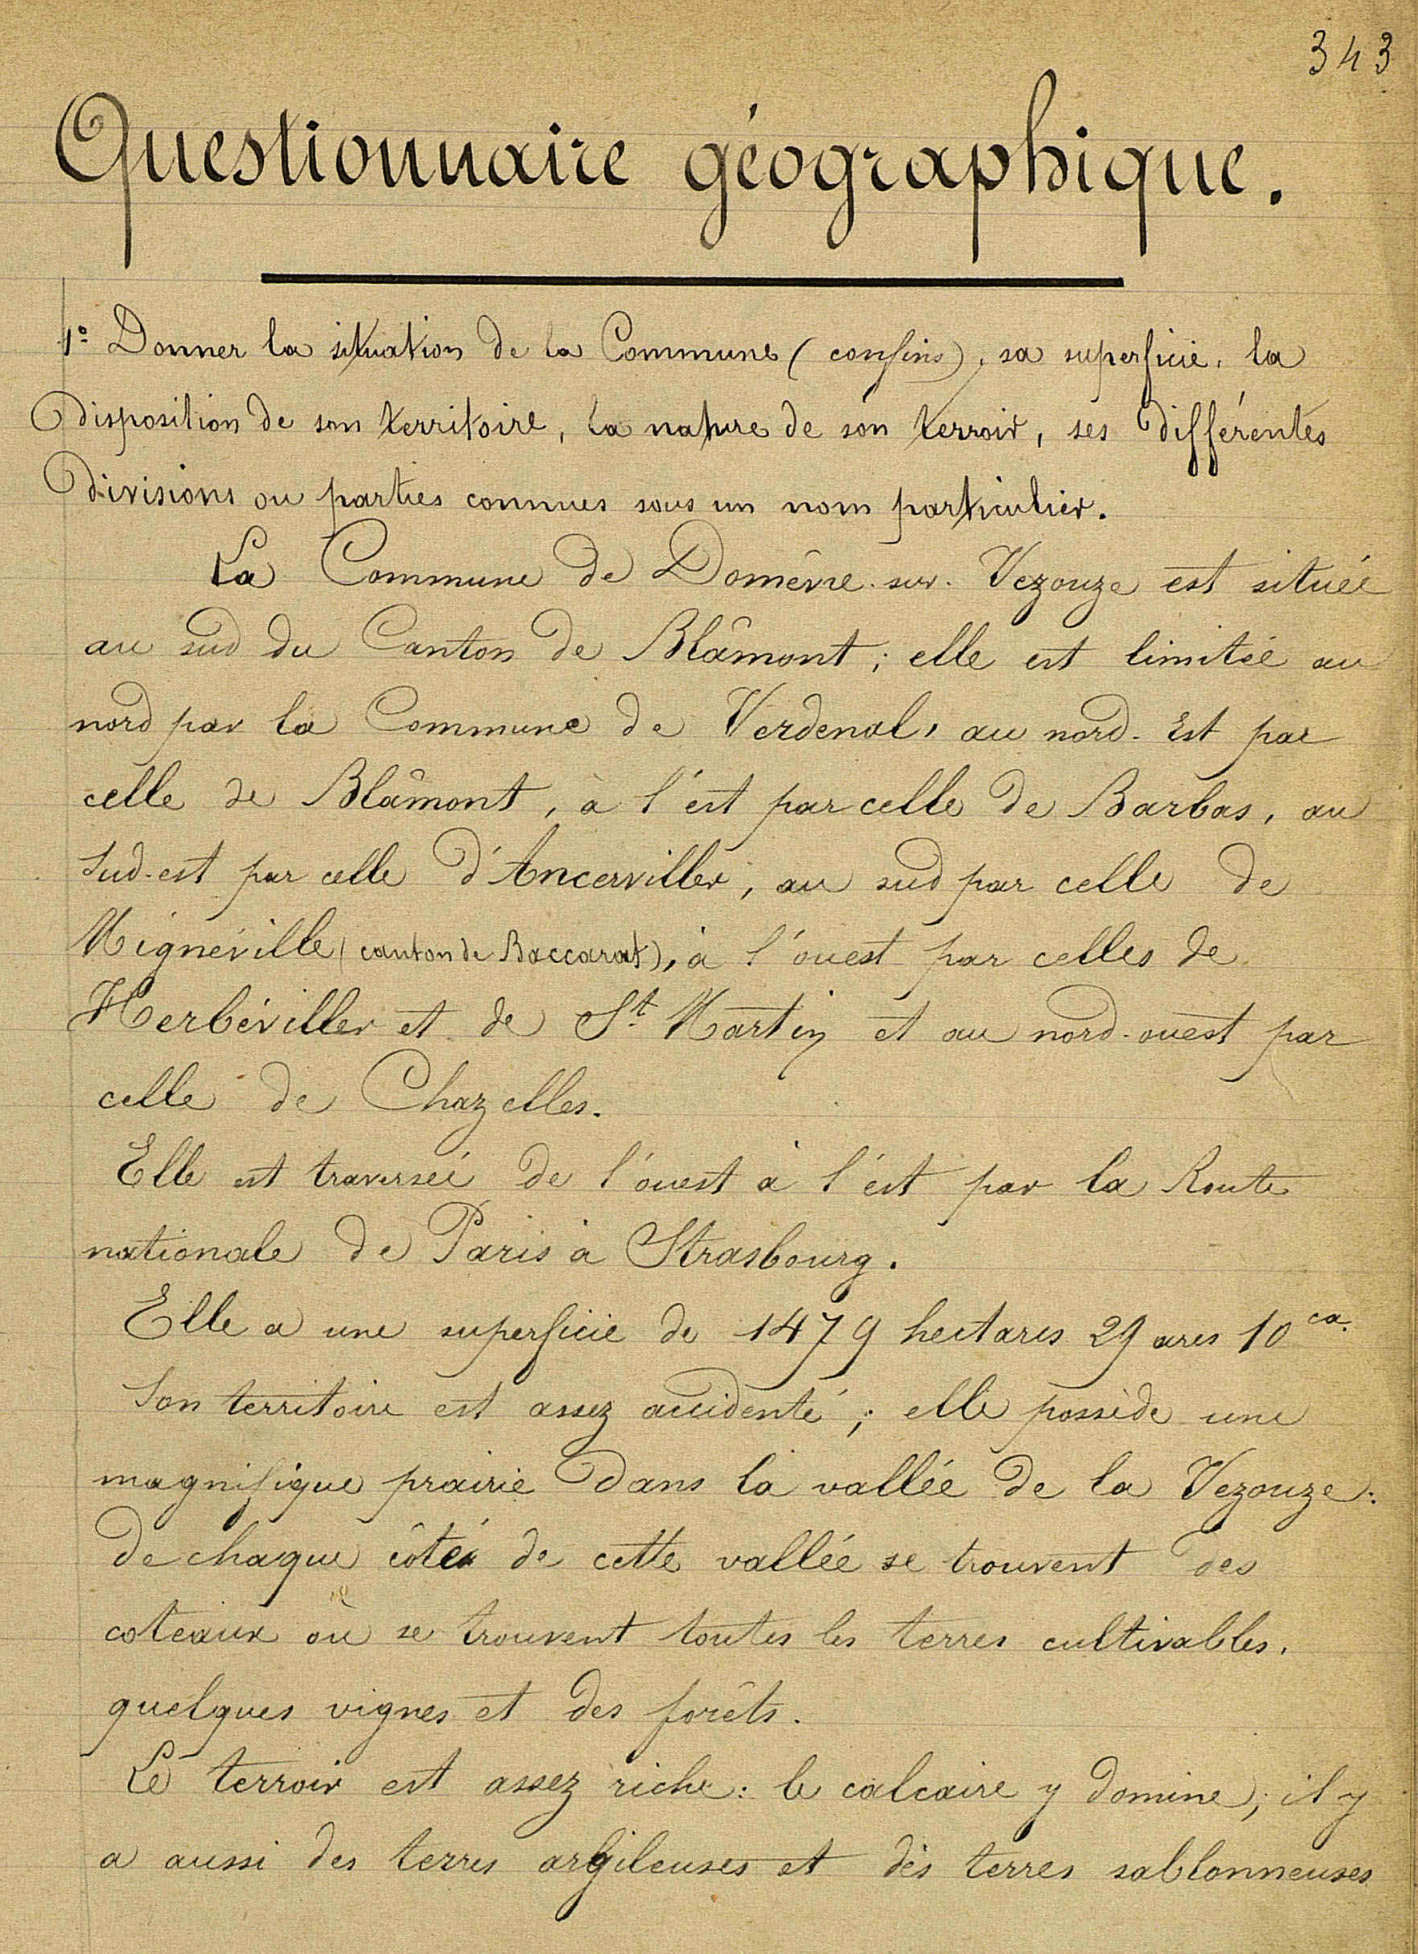 343
Questionnaire géographique.
1° Donner la situation de la Commune (confins), sa superficie, la
disposition de son territoire, la nature de son terroir, ses différentes
divisions ou parties connues sous un nom particulier.
La Commune de Domêvre-sur-Vezouze est située
au sud du Canton de Blâmont ; elle est limitée au
nord par la Commune de Verdenal, au nord-Est par
celle de Blâmont, à l'est par celle de Barbas, au
Sud-est par celle d'Ancerviller, au sud par celle de
Mignéville (canton de Baccarat), à l'ouest par celles de
Herbéviller et de St Martin et au nord-ouest par
celle de Chazelles.
Elle est traversée de l'ouest à l'est par la Route
nationale de Paris à Strasbourg.
Elle a une superficie de 1479 hectares 29 ares 10 ca.
Son territoire est assez accidenté ; elle possède une
magnifique prairie dans la vallée de la Vezouze :
de chaque côté de cette vallée se trouvent des
coteaux où se trouvent toutes les terres cultivables,
quelques vignes et des forêts.
Le terroir est assez riche : le calcaire y domine ; il y
a aussi des terres argileuses et des terres sablonneuses